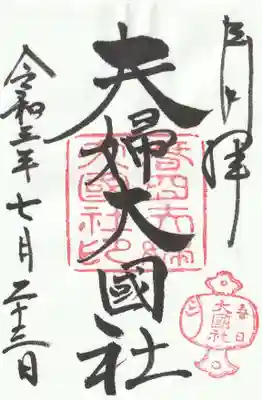 拝
夫婦大國社
春日夫婦
大國社印
令和三年七月二十三日
春日
大國社